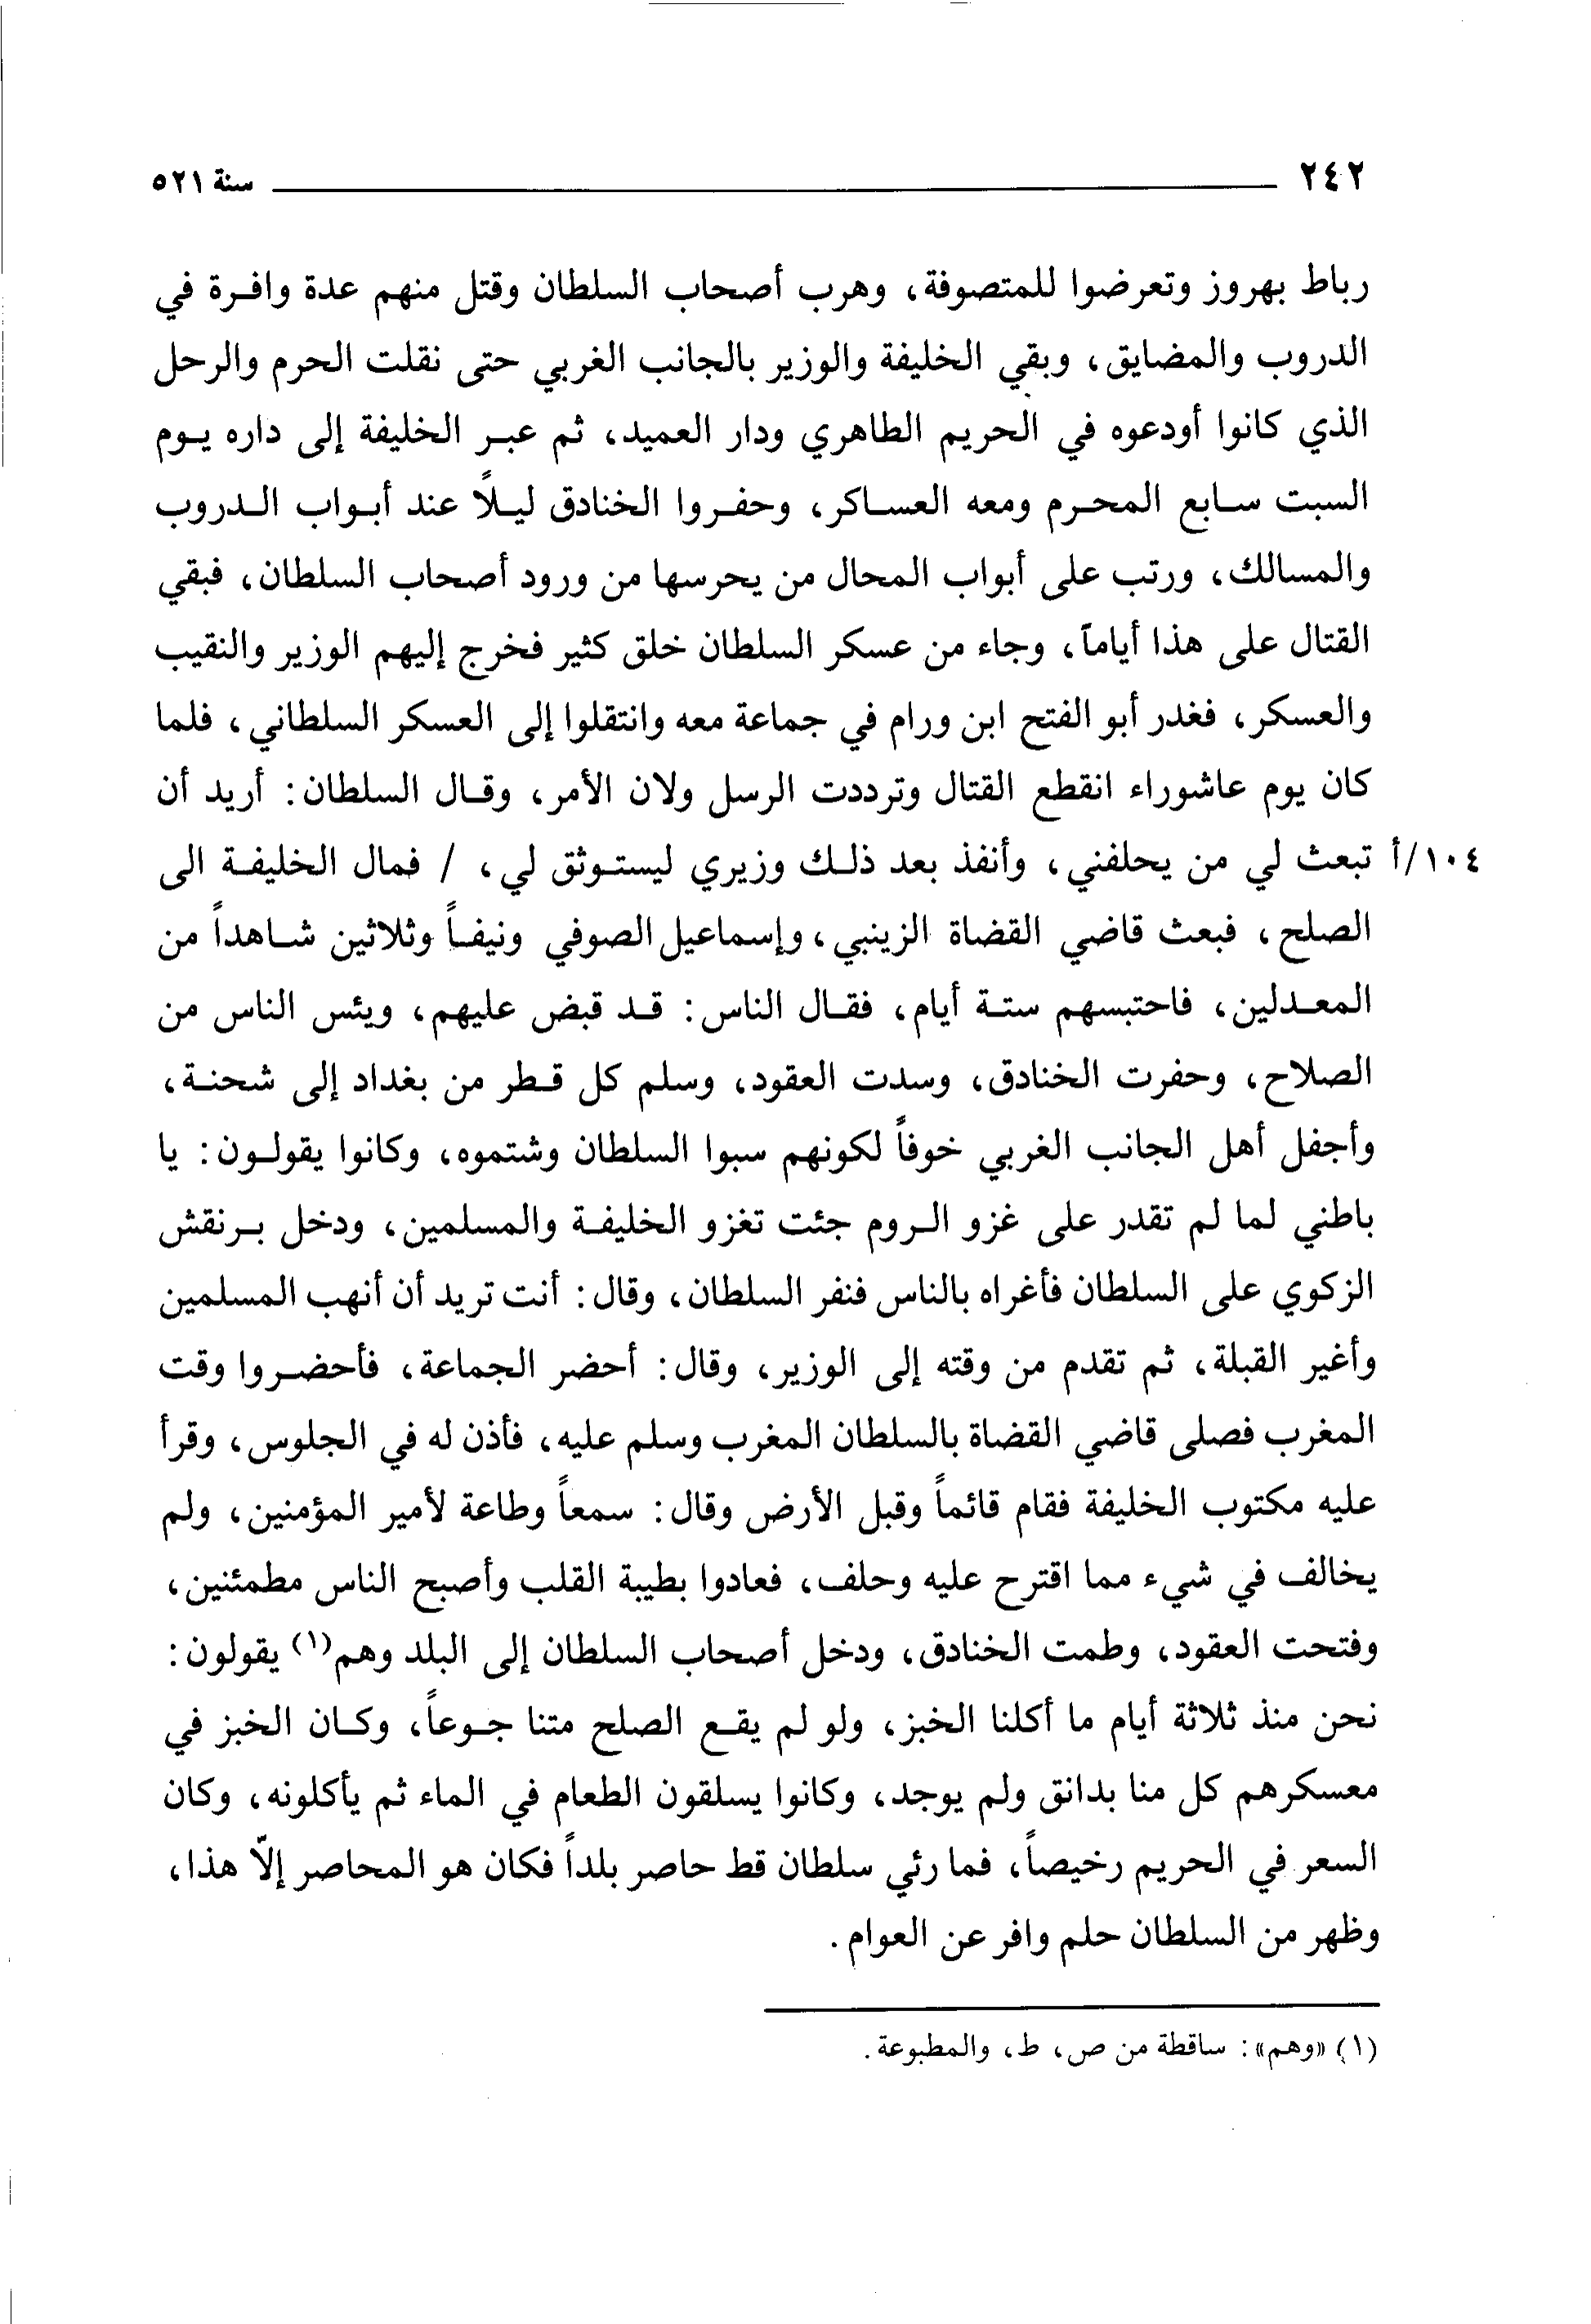 ٢٤٢ سنة ٥٢١
رباط بهروز وتعرضوا للمتصوفة، وهرب أصحاب السلطان وقتل منهم عدة وافرة في
الدروب والمضايق، وبقي الخليفة والوزير بالجانب الغربي حتى نقلت الحرم والرحل
الذي كانوا أودعوه في الحريم الطاهري ودار العميد، ثم عبر الخليفة إلى داره يوم
السبت سابع المحرم ومعه العساكر، وحفروا الخنادق ليلاً عند أبواب الدروب
والمسالك، ورتب على أبواب المحال من يحرسها من ورود أصحاب السلطان، فبقي
القتال على هذا أياماً، وجاء من عسكر السلطان خلق كثير فخرج إليهم الوزير والنقيب
والعسكر، فغدر أبو الفتح ابن ورام في جماعة معه وانتقلوا إلى العسكر السلطاني، فلما
كان يوم عاشوراء انقطع القتال وترددت الرسل ولان الأمر، وقال السلطان: أريد أن
١٠٤/أ تبعث لي من يحلفني، وأنفذ بعد ذلك وزيري ليستوثق لي، / فمال الخليفة الى
الصلح، فبعث قاضي القضاة الزينبي، وإسماعيل الصوفي ونيفاً وثلاثين شاهداً من
المعدلين، فاحتبسهم ستة أيام، فقال الناس: قد قبض عليهم، ويئس الناس من
الصلاح، وحفرت الخنادق، وسدت العقود، وسلم كل قطر من بغداد إلى شحنة،
وأجفل أهل الجانب الغربي خوفاً لكونهم سبوا السلطان وشتموه، وكانوا يقولون: يا
باطني لما لم تقدر على غزو الروم جئت تغزو الخليفة والمسلمين، ودخل برنقش
الزكوي على السلطان فأغراه بالناس فنفر السلطان، وقال: أنت تريد أن أنهب المسلمين
وأغير القبلة، ثم تقدم من وقته إلى الوزير، وقال: أحضر الجماعة، فأحضروا وقت
المغرب فصلى قاضي القضاة بالسلطان المغرب وسلم عليه، فأذن له في الجلوس، وقرأ
عليه مكتوب الخليفة فقام قائماً وقبل الأرض وقال: سمعاً وطاعة لأمير المؤمنين، ولم
يخالف في شيء مما اقترح عليه وحلف، فعادوا بطيبة القلب وأصبح الناس مطمئنين،
وفتحت العقود، وطمت الخنادق، ودخل أصحاب السلطان إلى البلد وهم(١) يقولون:
نحن منذ ثلاثة أيام ما أكلنا الخبز، ولو لم يقع الصلح متنا جوعاً، وكان الخبز في
معسكرهم كل منا بدانق ولم يوجد، وكانوا يسلقون الطعام في الماء ثم يأكلونه، وكان
السعر في الحريم رخيصاً، فما رئي سلطان قط حاصر بلداً فكان هو المحاصر إلاّ هذا،
وظهر من السلطان حلم وافر عن العوام.
(١) «وهم»: ساقطة من ص، ط، والمطبوعة.